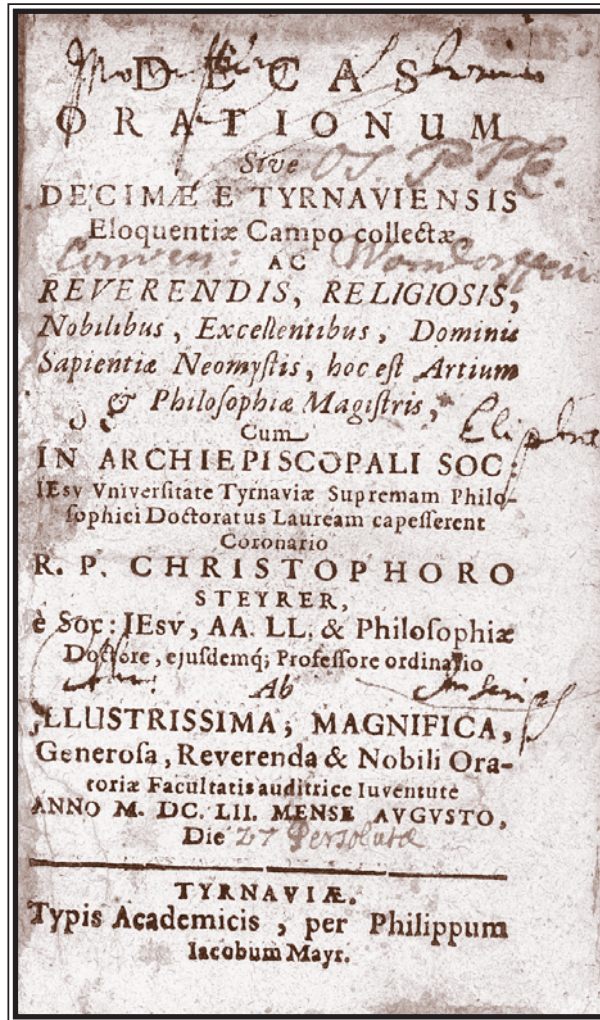 DECAS
ORATIONUM
Sive
DECIMÆ E TYRNAVIENSIS
Eloquentiæ Campo collectæ,
AC
REVERENDIS, RELIGIOSIS,
Nobilibus, Excellentibus, Dominis
Sapientiæ Neomyſtis, hoc eſt Artium
& Philoſophiæ Magiſtris,
Cum
IN ARCHIEPISCOPALI SOC:
IEsv Vniverſitate Tyrnaviæ Supremam Philo-
ſophici Doctoratus Lauream capeſſerent
Coronario
R. P. CHRISTOPHORO
STEYRER,
è Soc: IEsv, AA. LL. & Philoſophiæ
Doctore, ejuſdemq́; Profeſſore ordinario
Ab
ILLUSTRISSIMA, MAGNIFICA,
Generoſa, Reverenda & Nobili Ora-
toriæ Facultatis auditrice Iuventute
ANNO M. DC. LII. MENSE AVGVSTO,
Die 27 Persolutæ
TYRNAVIÆ.
Typis Academicis, per Philippum
Iacobum Mayr.